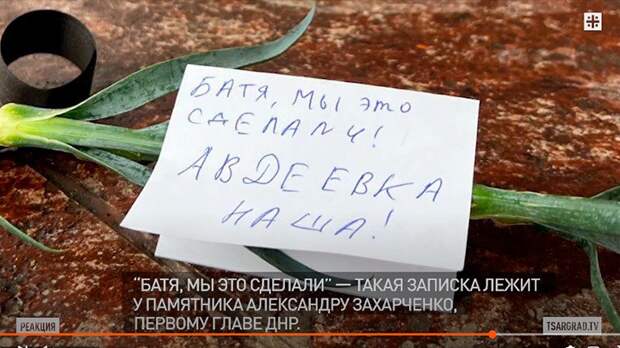 БАТЯ, МЫ ЭТО
СДЕЛАЛИ!
АВДЕЕВКА
НАША!
"БАТЯ, МЫ ЭТО СДЕЛАЛИ" — ТАКАЯ ЗАПИСКА ЛЕЖИТ
У ПАМЯТНИКА АЛЕКСАНДРУ ЗАХАРЧЕНКО,
ПЕРВОМУ ГЛАВЕ ДНР.
РЕАКЦИЯ
TSARGRAD.TV